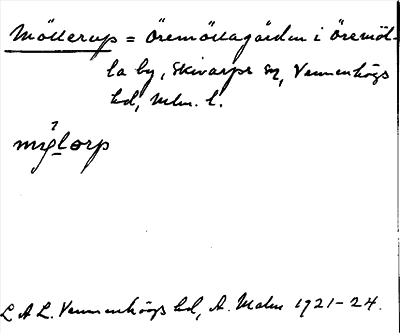 Möllerup = Öremöllagården i Öremöl-
la by, Skivarps sn, Vemmenhögs
hd, Mlm. l.
LAL. Vemmenhögs hd, A. Malm 1921-24.